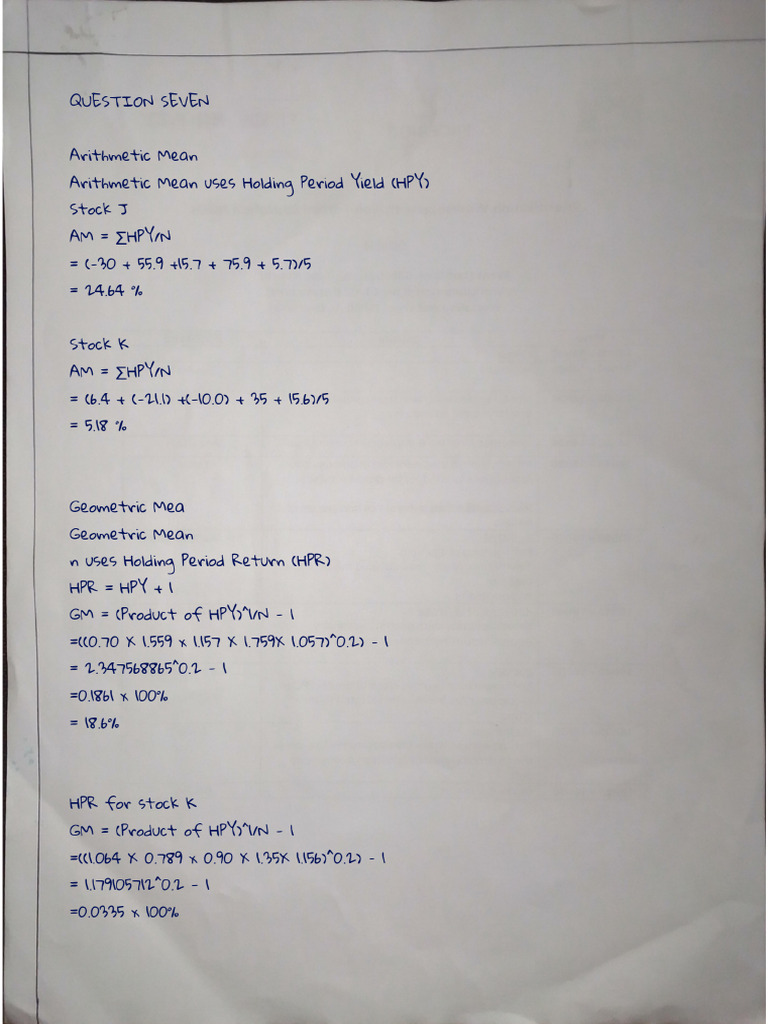 QUESTION SEVEN
Arithmetic Mean
Arithmetic Mean uses Holding Period Yield (HPY)
Stock J
AM = ∑HPY/N
= (-30 + 55.9 +15.7 + 75.9 + 5.7)/5
= 24.64 %
Stock K
AM = ∑HPY/N
= (6.4 + (-21.1) +(-10.0) + 35 + 15.6)/5
= 5.18 %
Geometric Mea
Geometric Mean
n uses Holding Period Return (HPR)
HPR = HPY + 1
GM = (Product of HPY)^1/N - 1
=((0.70 X 1.559 x 1.157 X 1.759X 1.057)^0.2) - 1
= 2.347568865^0.2 - 1
=0.1861 x 100%
= 18.6%
HPR for stock K
GM = (Product of HPY)^1/N - 1
=((1.064 X 0.789 x 0.90 X 1.35X 1.156)^0.2) - 1
= 1.179105712^0.2 - 1
=0.0335 x 100%